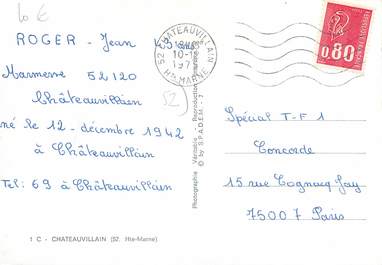 10 €
ROGER - Jean
Marmesse 52120
Châteauvillain
né le 12 - décembre 1942
à Châteauvillain
Tel: 69 à Châteauvillain
1 C - CHATEAUVILLAIN (52. Hte-Marne)
52 CHATEAUVILLAIN
10-1
197
Hte MARNE
52
Photographie Véritable - Reproduction
© by S.P.A.D.E.M. - 7
0,80
Spécial T-F1
Concorde
15 rue Cognacq-Jay
75007 Paris